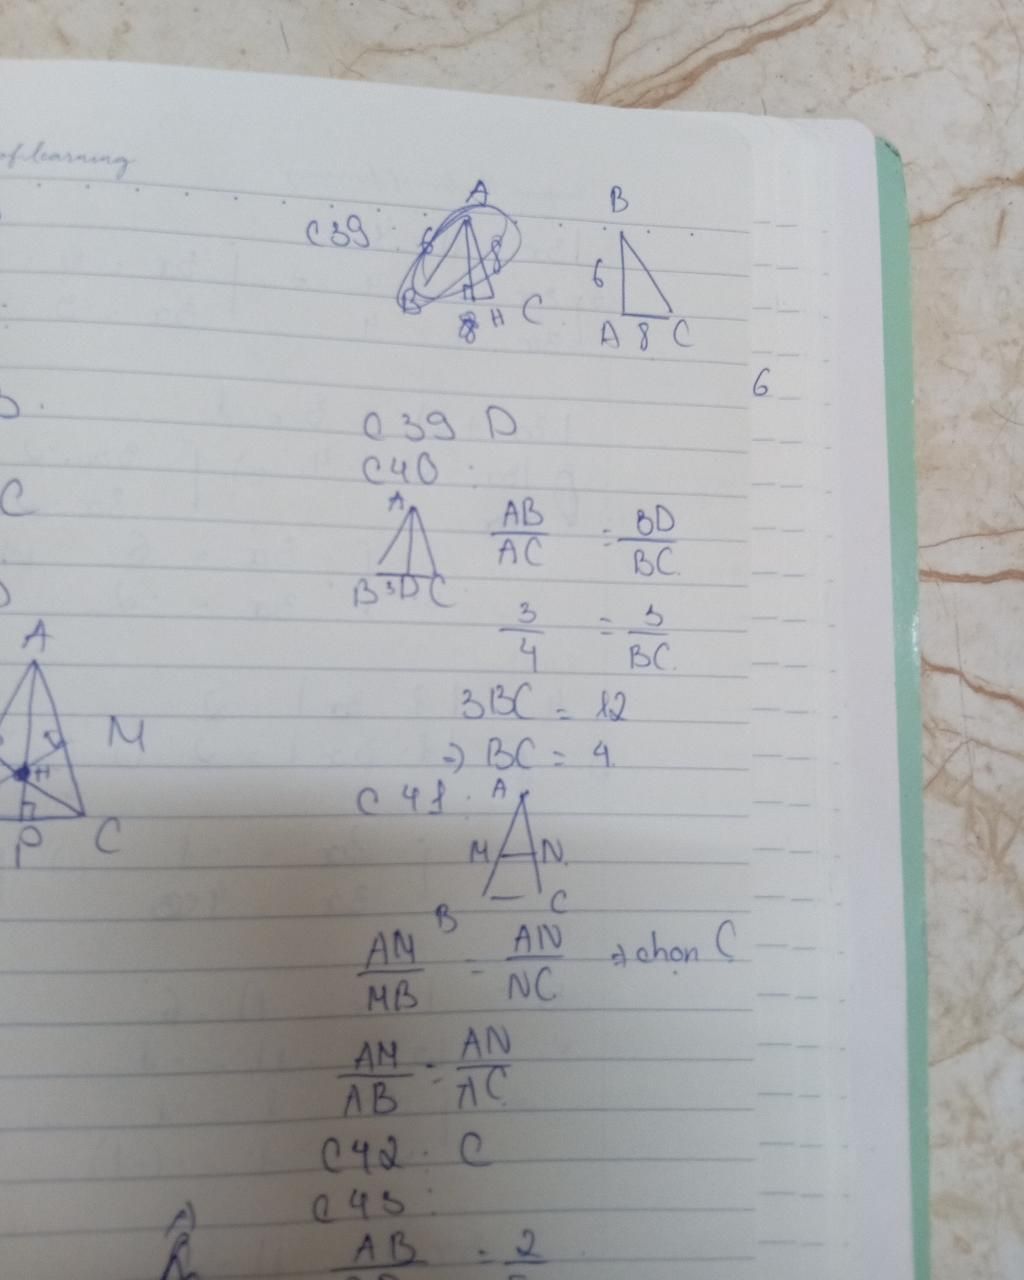 of learning
C39 :
A
6
8
B
8 H C
B
6
A 8 C
6
C39 D
C40 :
A
B 3 D C
AB/AC = BD/BC
3/4 = 3/BC
3BC = 12
=> BC = 4
C41 :
A
M N
B C
AM/MB = AN/NC => chon C
AM/AB = AN/AC
C42 : C
C43 :
AB = 2
C
A
M
H
P C
A